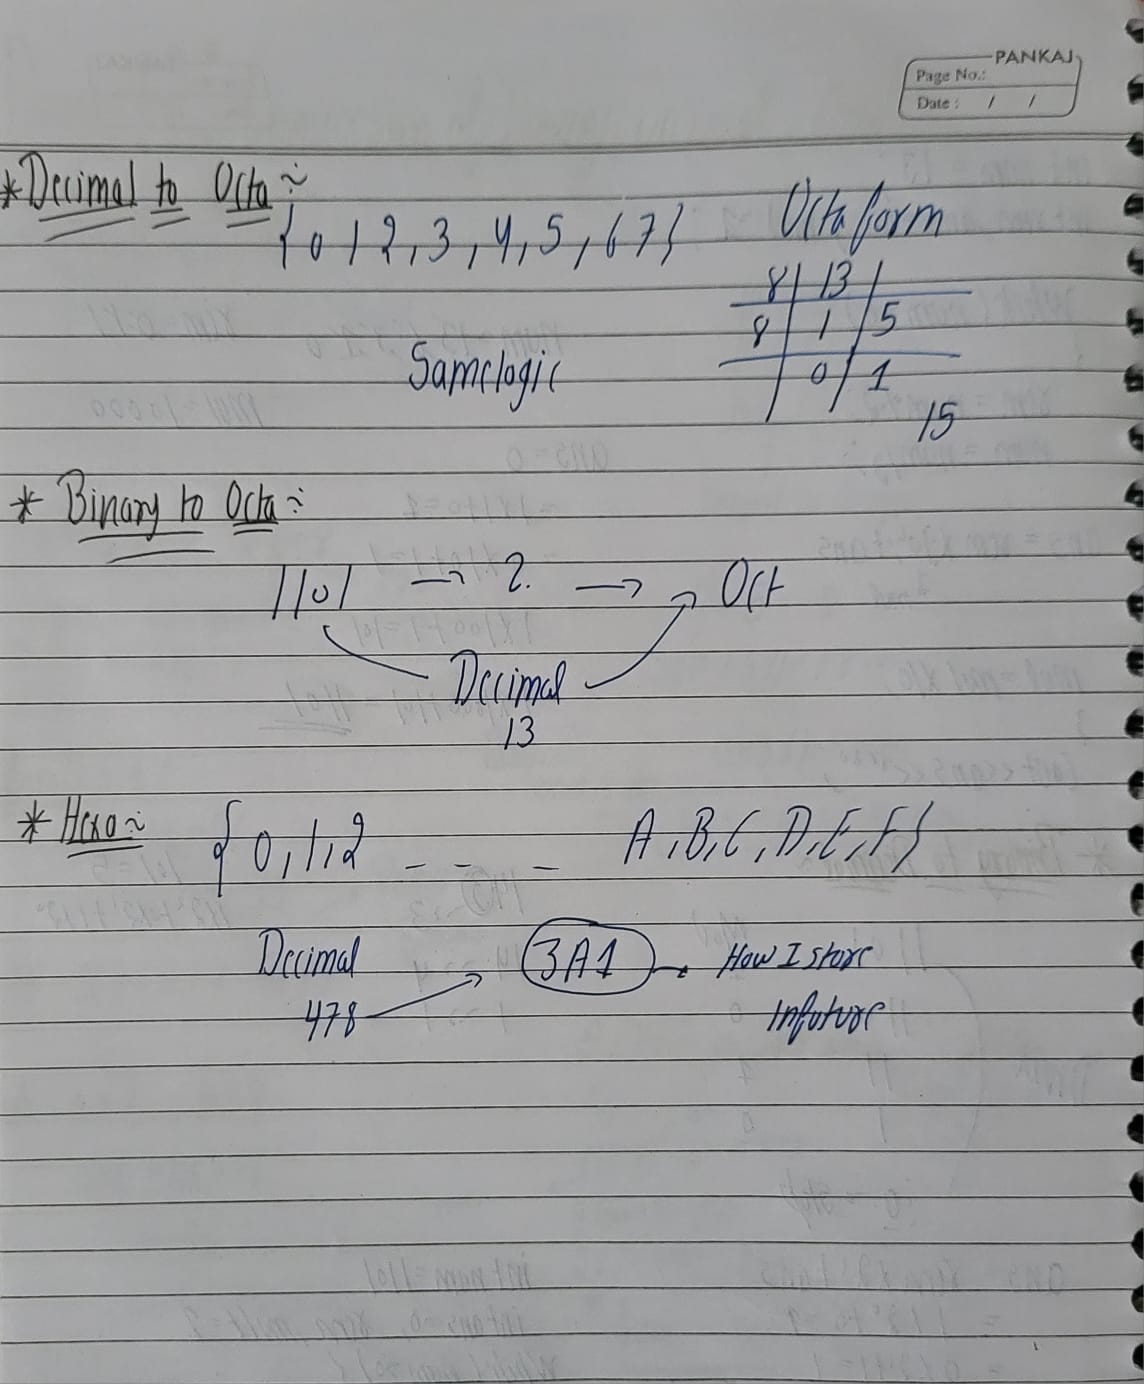 PANKAJ
Page No.:
Date: / /
* Decimal to Octa ~
{ 0 1 2, 3, 4, 5, 6 7 }
Octa form
8 | 13 |
8 | 1 | 5
| 0 | 1
15
Samelogic
* Binary to Octa ~
1101 → 2. → Oct
Decimal
13
* Hexa ~ { 0, 1, 2 - - - A, B, C, D, E, F }
Decimal 3A1 How I store
478 Infuture